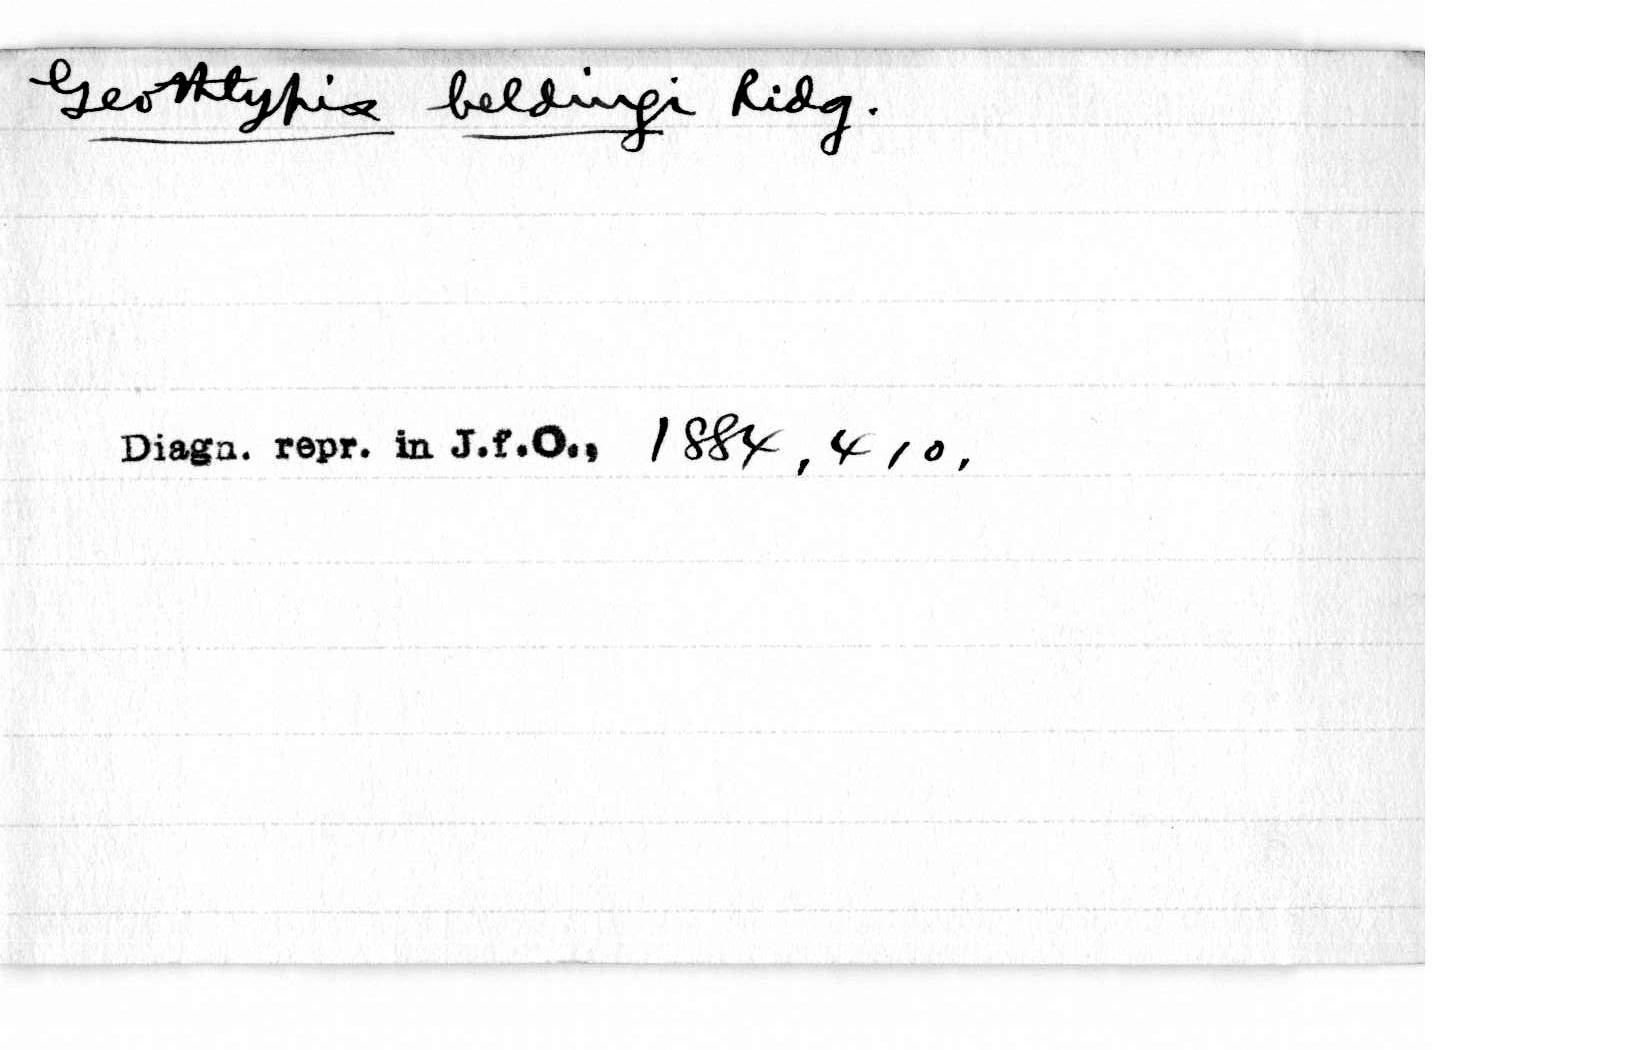 Geothlypis beldingi Ridg.
Diagn. repr. in J.f.O., 1884, 410,